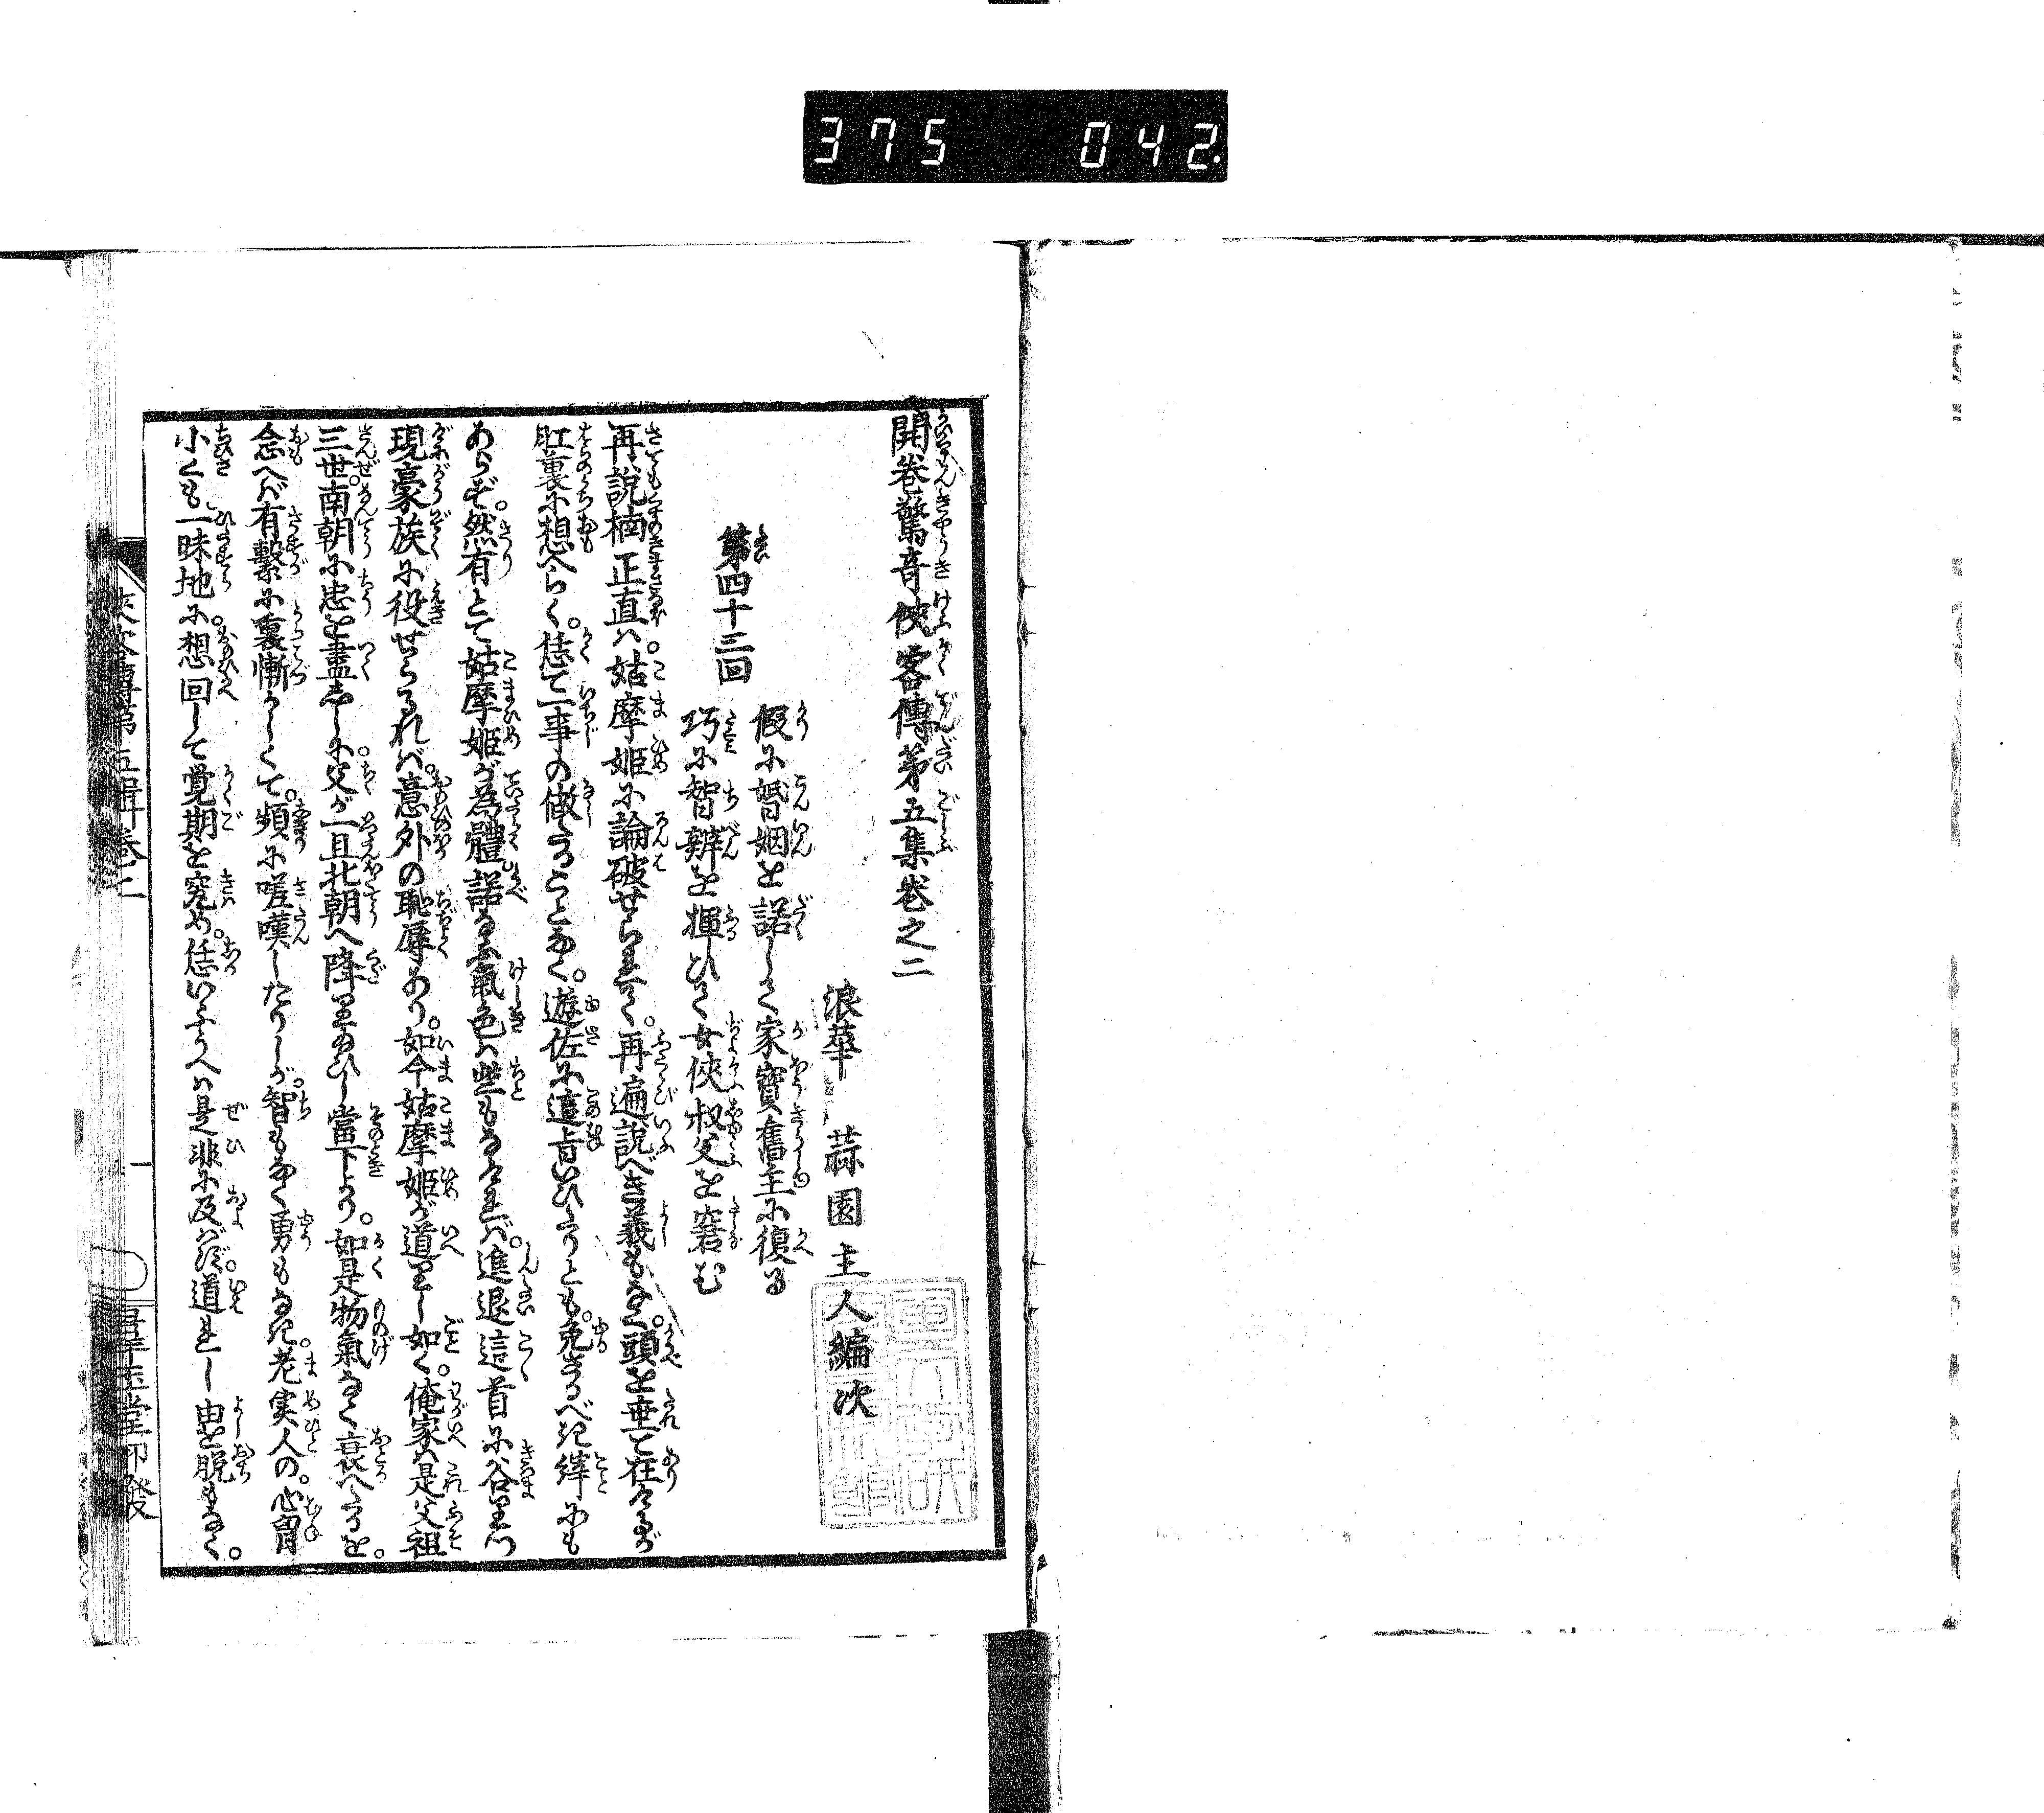 375 042
開巻驚竒侠客傳第五集巻之二
浪華 蒜園主人編次
第四十三回
假に婚姻を諾して家寳舊主に復る
巧に智辨を揮ひて女侠叔父を窘む
再說楠正直ハ。姑摩姬に論破せられて。再遍說べき義もなく。頭を垂て在けるが
肚裏に想へらく。恁て一事の做るることなく。遊佐に這旨いひうるとも。免さるべき繹にも
あらず。然有とて姑摩姬が為體。諾なふ氣色ハ些もなけれバ。進退這首に谷りつ
現豪族に役せらるれバ。意外の恥辱あり。如今姑摩姬が道れし如く。俺家ハ是父祖
三世。南朝に忠を盡せしに。父が一旦北朝へ降りたまひし當下より。如是物氣なく衰へたるを。
念へバ有繋に裏慚かしくて。頻に嗟嘆したりしが。智もなく勇もなき。老実人の。心胷
小くも一昧地に。想回して覺期を究め。恁いふうへハ是非に及バず。道れし由を脱もなく。
侠客傳第五輯巻二
一
羣玉堂印發